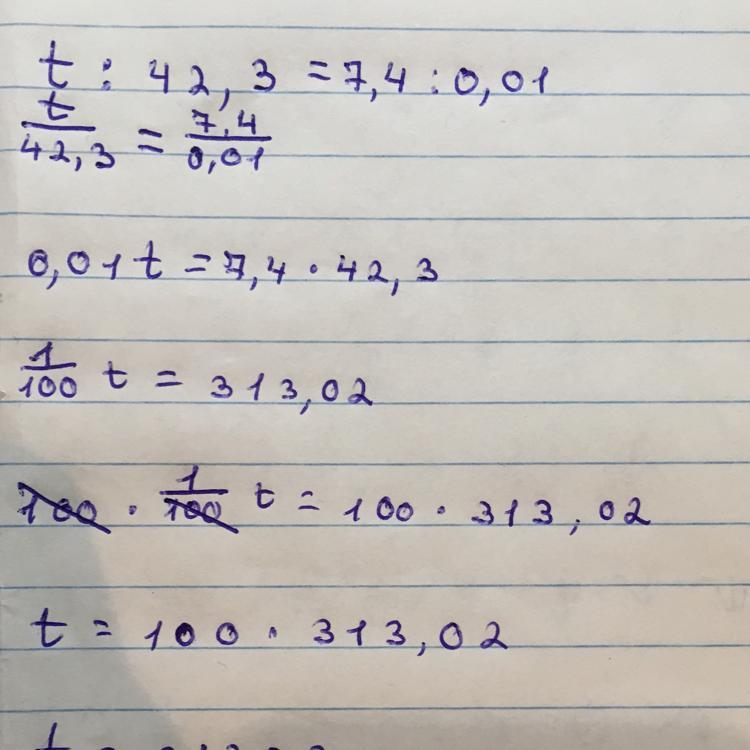 t : 42,3 = 7,4 : 0,01
t/42,3 = 7,4/0,01
0,01 t = 7,4 · 42,3
1/100 t = 313,02
100 · 1/100 t = 100 · 313,02
t = 100 · 313,02